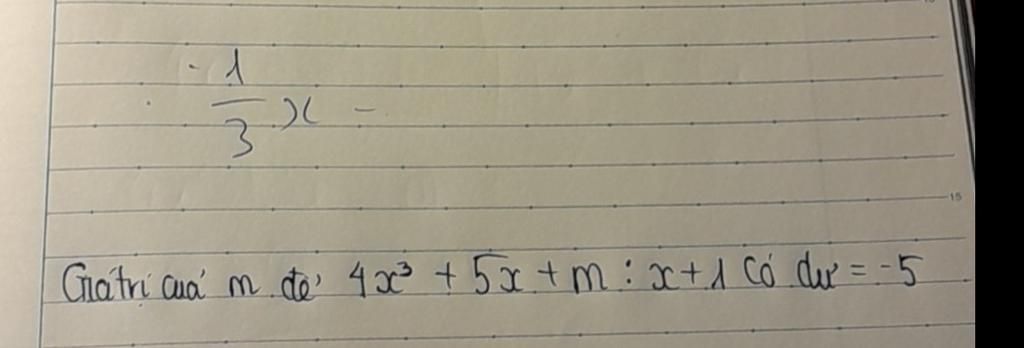 -1
3 x -
15
Giá trị cuả m để 4x³ + 5x + m : x+1 có dư = -5